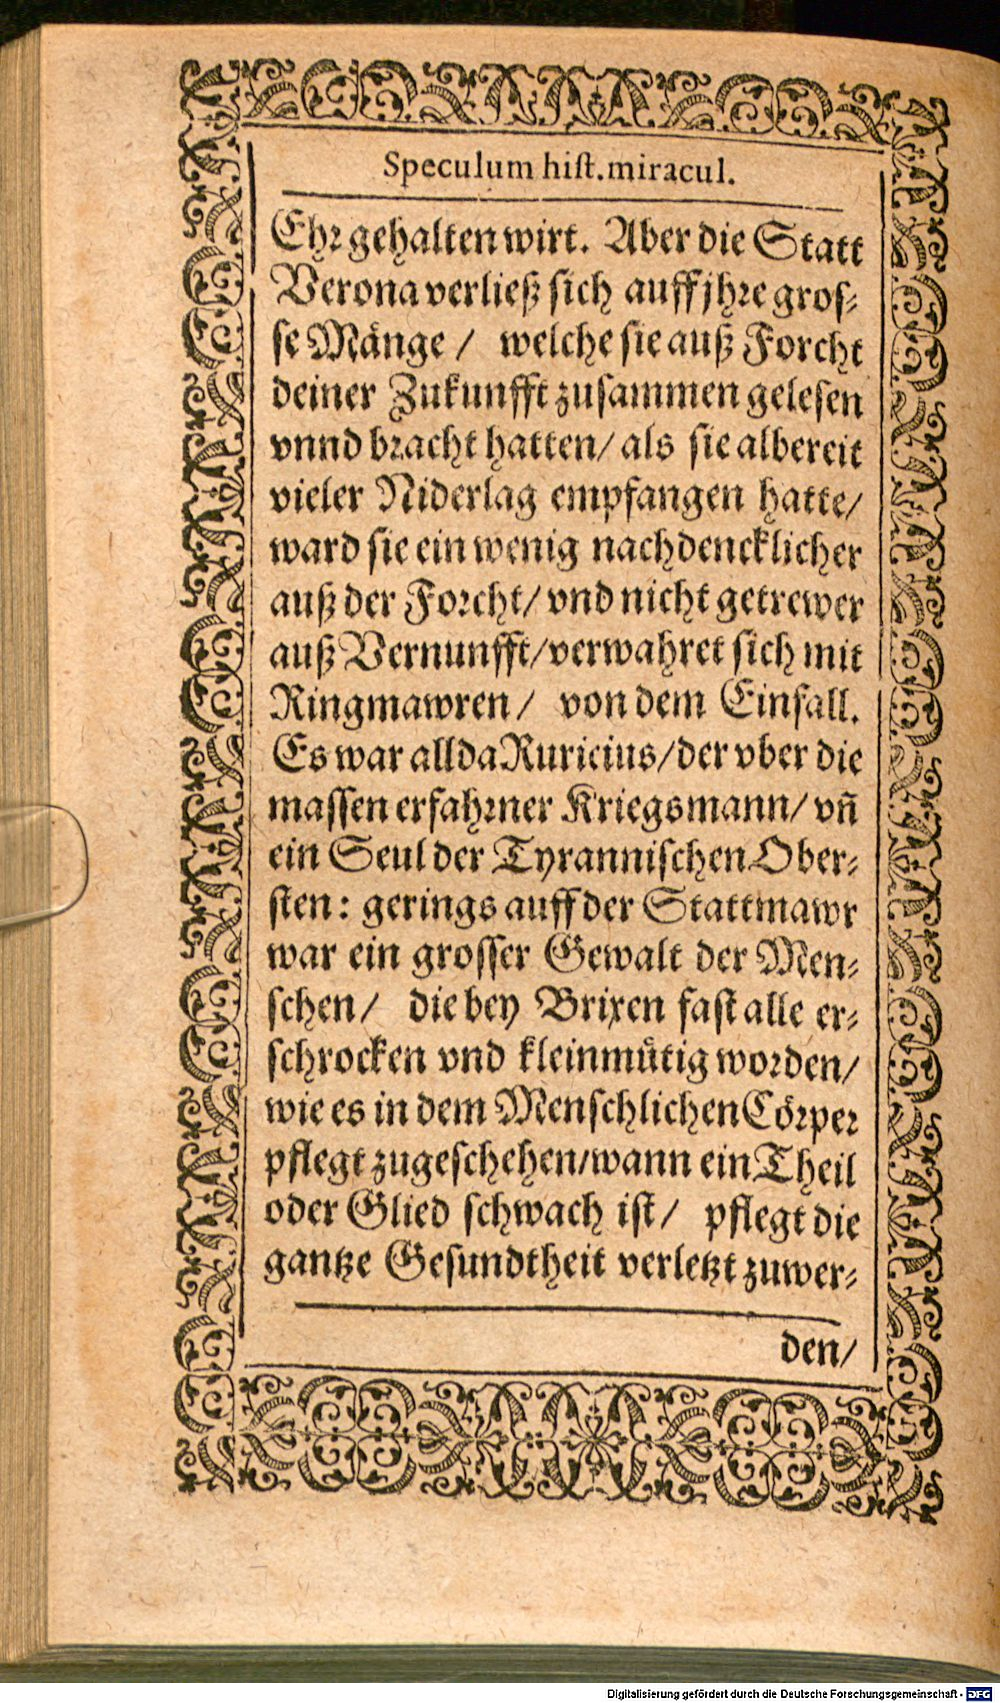 Speculum hist. miracul.
Ehr gehalten wirt. Aber die Statt
Verona verließ sich auff jhre gros-
se Mänge / welche sie auß Forcht
deiner Zukunfft zusammen gelesen
vnnd bracht hatten/ als sie albereit
vieler Niderlag empfangen hatte/
ward sie ein wenig nachdencklicher
auß der Forcht/ vnd nicht getrewer
auß Vernunfft/ verwahret sich mit
Ringmawren / von dem Einfall.
Es war allda Ruricius/ der vber die
massen erfahrner Kriegsmann/ vñ
ein Seul der Tyrannischen Ober-
sten: gerings auff der Stattmawr
war ein grosser Gewalt der Men-
schen / die bey Brixen fast alle er-
schrocken vnd kleinmütig worden/
wie es in dem Menschlichen Cörper
pflegt zugeschehen/ wann ein Theil
oder Glied schwach ist / pflegt die
gantze Gesundtheit verletzt zuwer-
den/
Digitalisierung gefördert durch die Deutsche Forschungsgemeinschaft - DFG